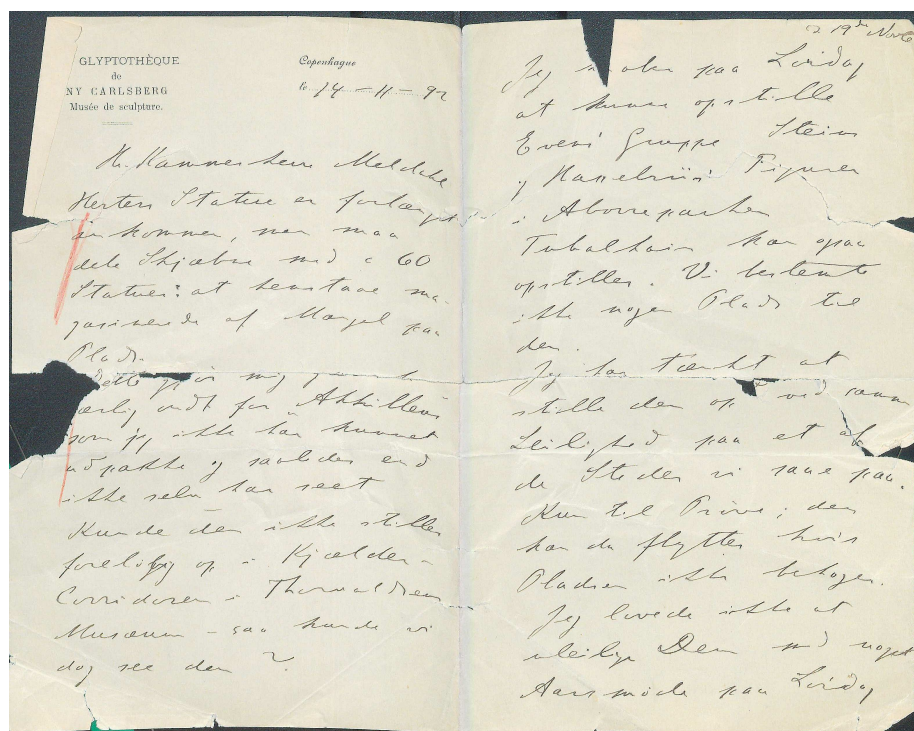 GLYPTOTHÈQUE
de
NY CARLSBERG
Musée de sculpture.
Copenhague
le 14 - 11 - 92
Hr. Kammerherre Meldahl
Herters Statue er forlængst
ankommen, men maa
dele Skjæbne med c 60
Statuer: at henstaae ma-
gasinerede af Mangel paa
Plads.
Dette gjør mig
ondt for Akhilleus
som jeg ikke har kunnet
udpakke og saaledes end
ikke selv har seet
Kunde den ikke stilles
foreløbig op i Kjælder-
Corridoren i Thorvaldsens
Musæum - saa kunde vi
dog see den ?
19de Novbr
Jeg paa Lørdag
at kunne opstille
Evens Gruppe Steins
og Hasselriis' Figurer
i Aborreparken
Tubalkain kan ogsaa
opstilles. Vi bestemte
ikke nogen Plads til
den.
Jeg har tænkt at
stille den op ved samme
Leilighed paa et af
de Steder vi saae paa.
Kun til Prøve; den
kan da flyttes hvis
Pladsen ikke behager.
Jeg lovede ikke at
uleilige Dem med noget
Aarsmøde paa Lørdag